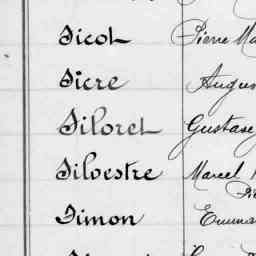 Sicot Pierre Ma
Sicre Augus
Siloret Gustave
Silvestre Marcel
Simon Emma